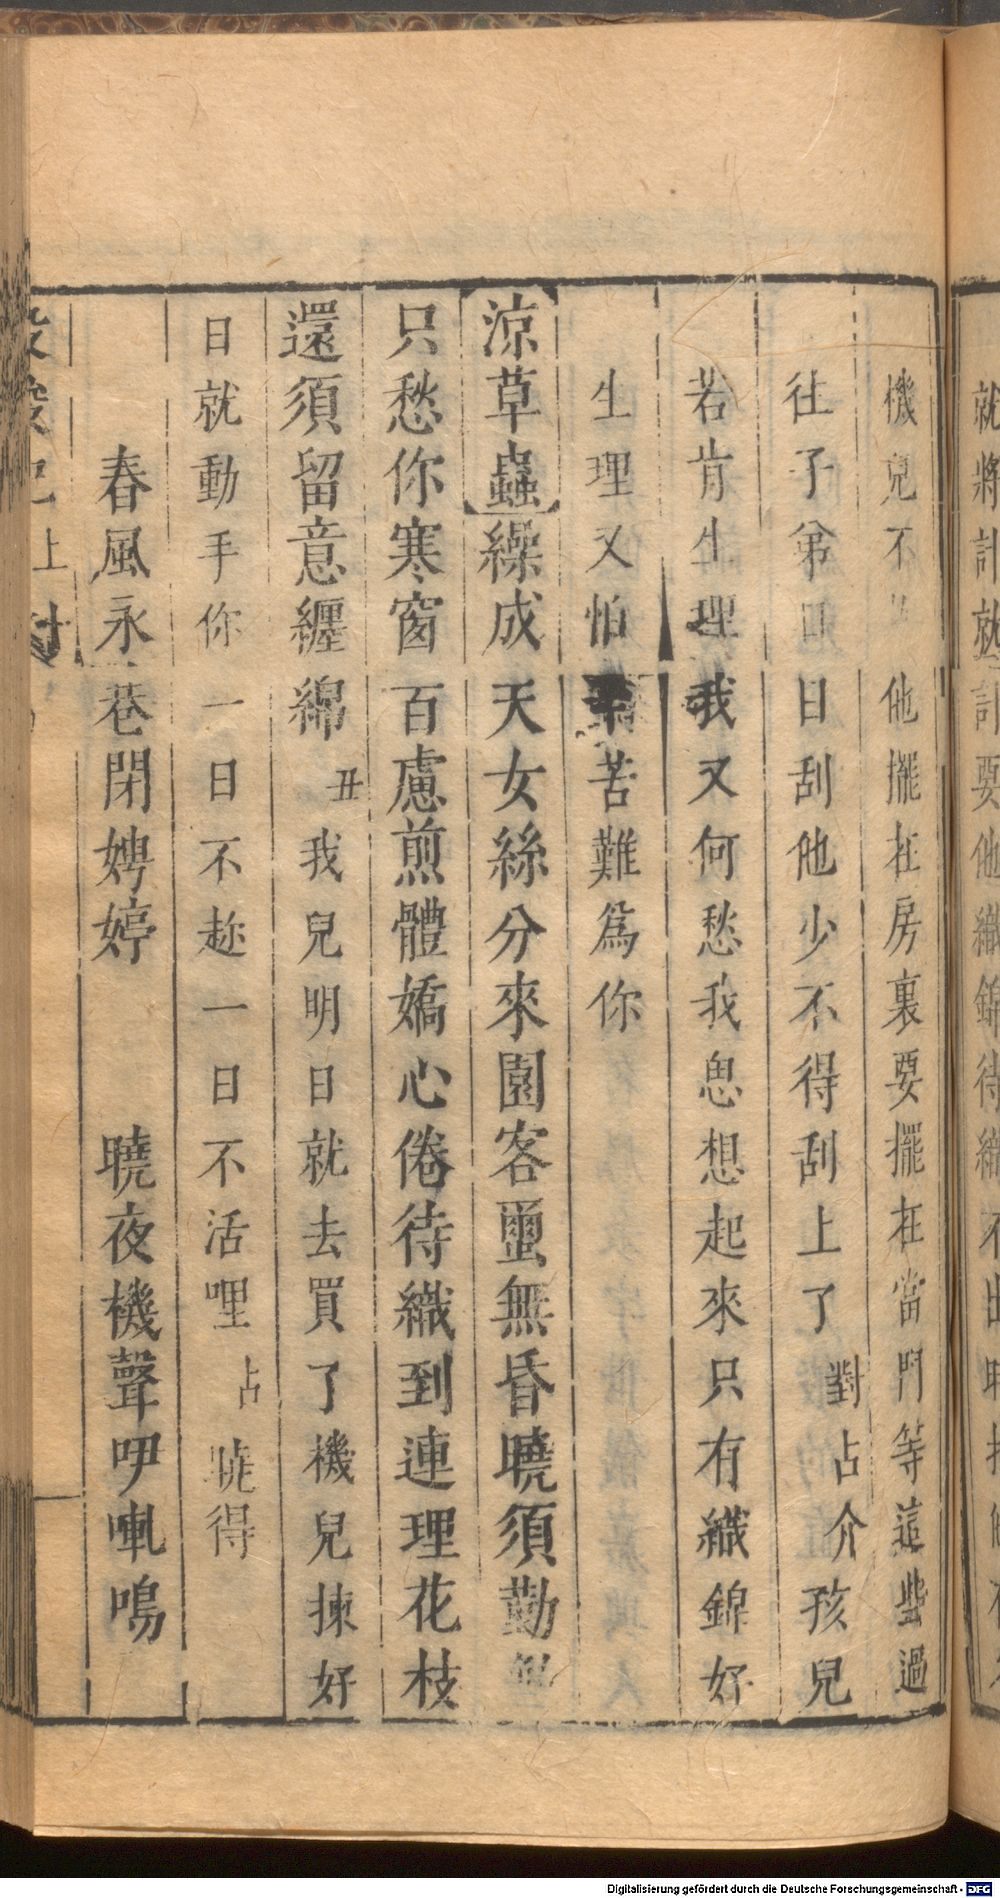 就將計就計要他織錦待織
機兒不 他擺在房裏要擺在當門等這些過
往子弟 日刮他少不得刮上了對占介孩兒
若肯生理我又何愁我思想起來只有織錦好
生理又怕 苦難為你
涼草蟲繰成天女絲分來園客䖢無昏曉須勤
只愁你寒窗百慮煎體嬌心倦待織到連理花枝
還須留意纏綿丑我兒明日就去買了機兒揀好
日就動手你一日不趂一日不活哩占曉得
春風永巷閉娉婷 曉夜機聲咿嘽鳴
上
Digitalisierung gefördert durch die Deutsche Forschungsgemeinschaft - DFG